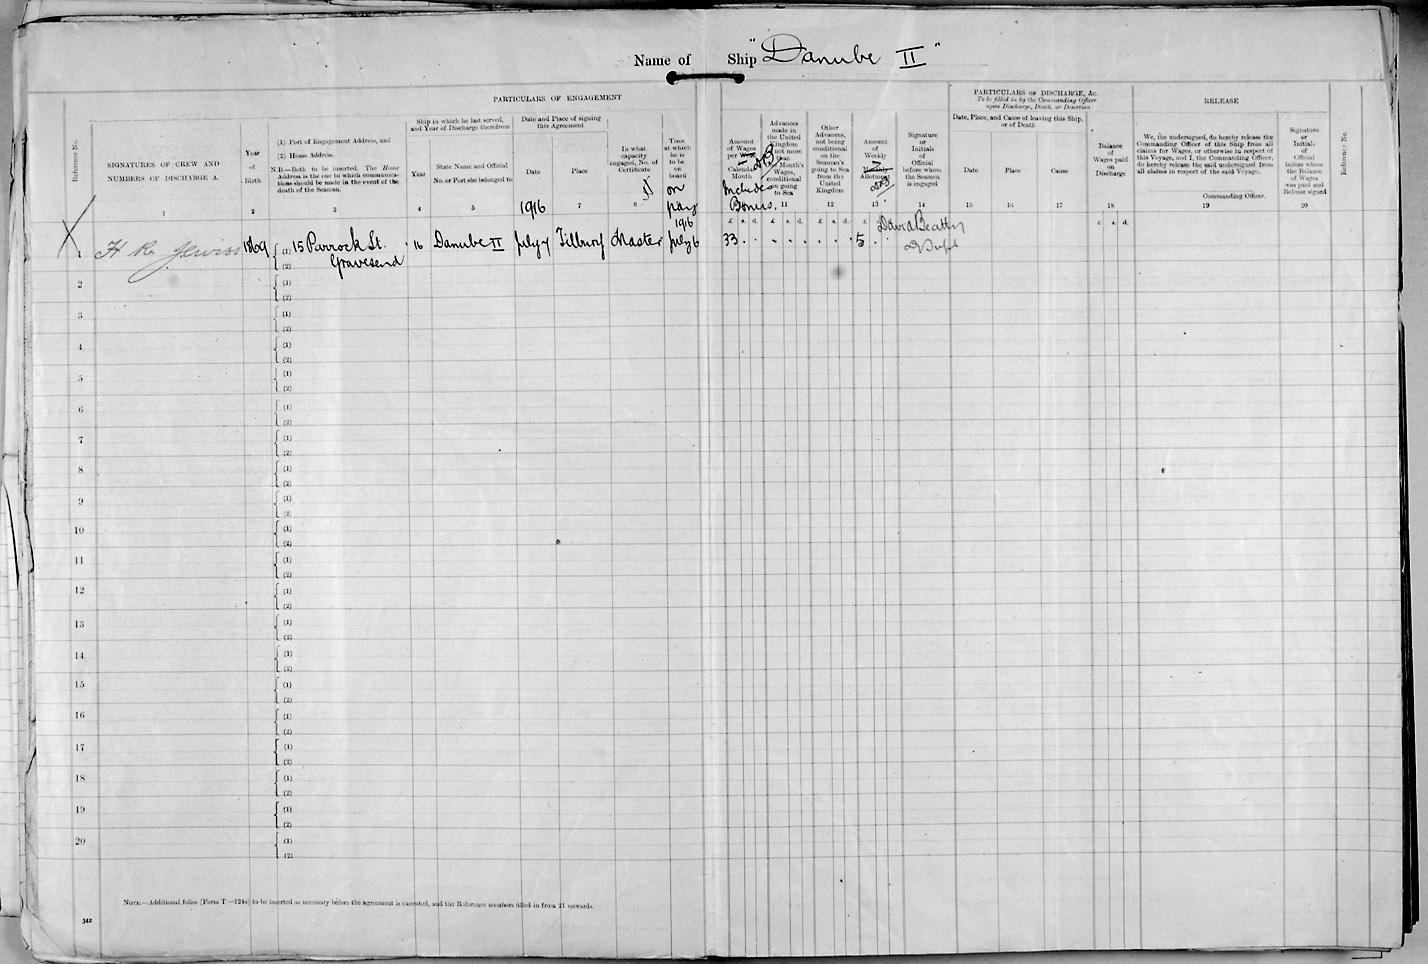 Name of Ship "Danube II"
PARTICULARS OF ENGAGEMENT
PARTICULARS OF DISCHARGE, &c.
To be filled in by the Commanding Officer
upon Discharge, Death, or Desertion
RELEASE
Reference No.
SIGNATURES OF CREW AND
NUMBERS OF DISCHARGE A.
Year
of
Birth
(1) Port of Engagement Address, and
(2) Home Address.
N.B.—Both to be inserted. The Home
Address is the one to which communica-
tions should be made in the event of the
death of the Seaman.
Ship in which he last served,
and Year of Discharge therefrom
Year
State Name and Official
No. or Port she belonged to
Date and Place of signing
this Agreement
Date
Place
In what
capacity
engaged, No. of
Certificate
Time
at which
he is
to be
on
board
on
pay
Amount
of Wages
per
Calendar
Month
Includes
Bonus.
Advances
made in
the United
Kingdom
not more
than
Month's
Wages,
conditional
on going
to Sea
Other
Advances,
not being
conditional
on the
Seaman's
going to Sea
from the
United
Kingdom
Amount
of
Weekly
Allotment
Signature
or
Initials
of
Official
before whom
the Seaman
is engaged
Date, Place, and Cause of leaving this Ship,
or of Death
Date
Place
Cause
Balance
of
Wages paid
on
Discharge
We, the undersigned, do hereby release the
Commanding Officer of this Ship from all
claims for Wages, or otherwise in respect of
this Voyage, and I, the Commanding Officer,
do hereby release the said undersigned from
all claims in respect of the said Voyage.
Commanding Officer.
Signature
or
Initials
of
Official
before whom
the Balance
of Wages
was paid and
Release signed
Reference No.
1 2 3 4 5 1916 7 8 11 12 13 14 15 16 17 18 19 20
£ s. d. £ s. d. £ s. d. £ s. d. £ s. d.
X 1869 (1) 15 Parrock St. 16 Danube II July 7 Tilbury Master 1916 July 6 33 . . . . . . . . 5 . . David Beatty
(2) Gravesend
2 (1)
(2)
3 (1)
(2)
4 (1)
(2)
5 (1)
(2)
6 (1)
(2)
7 (1)
(2)
8 (1)
(2)
9 (1)
(2)
10 (1)
(2)
11 (1)
(2)
12 (1)
(2)
13 (1)
(2)
14 (1)
(2)
15 (1)
(2)
16 (1)
(2)
17 (1)
(2)
18 (1)
(2)
19 (1)
(2)
20 (1)
(2)
NOTE.—Additional folios (Form T.—124A) to be inserted as necessary before the Agreement is executed, and the Reference numbers filled in from 21 onwards.
342